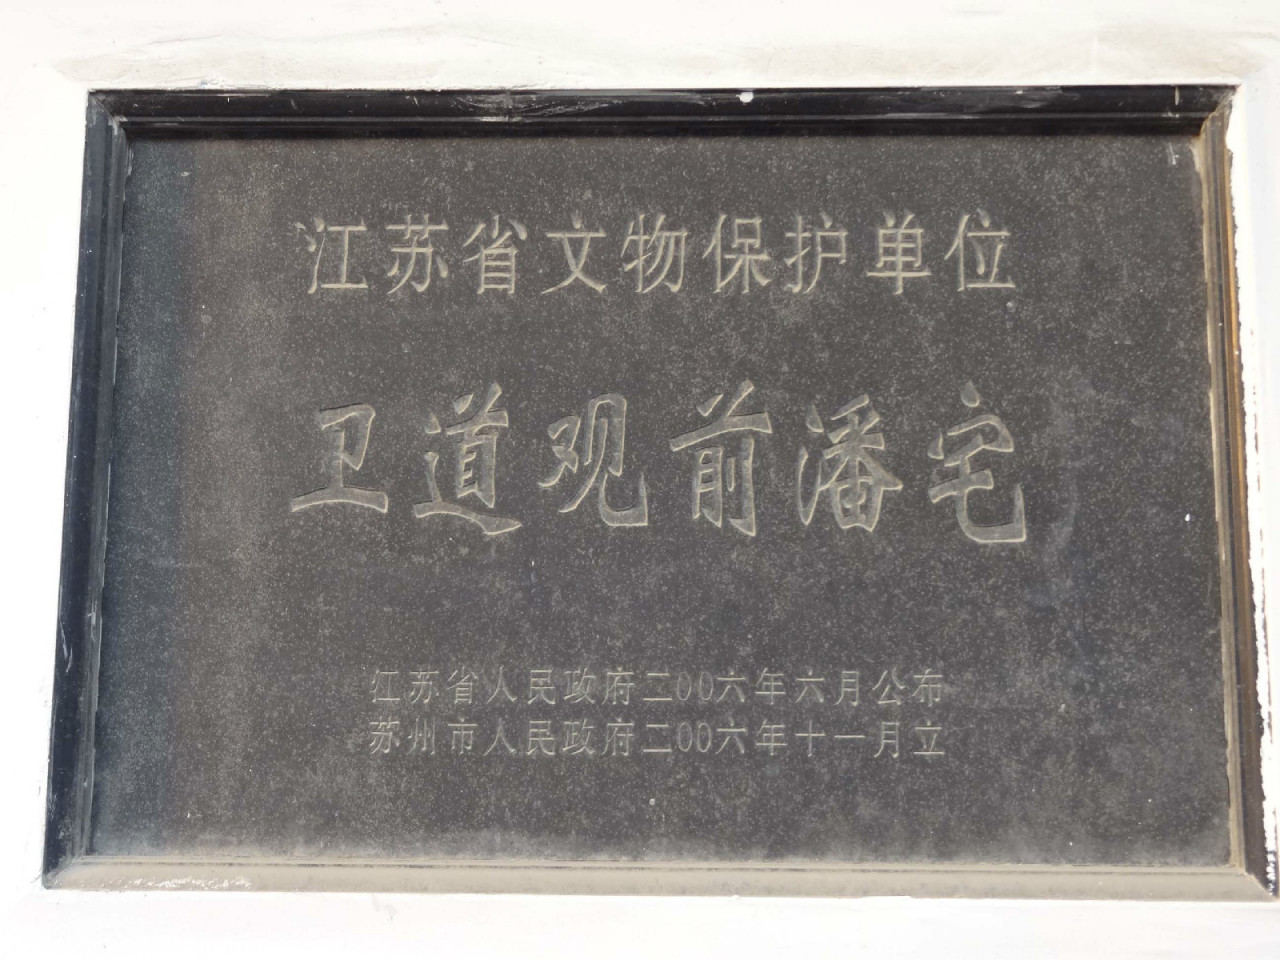 江苏省文物保护单位
卫道观前潘宅
江苏省人民政府二00六年六月公布
苏州市人民政府二00六年十一月立